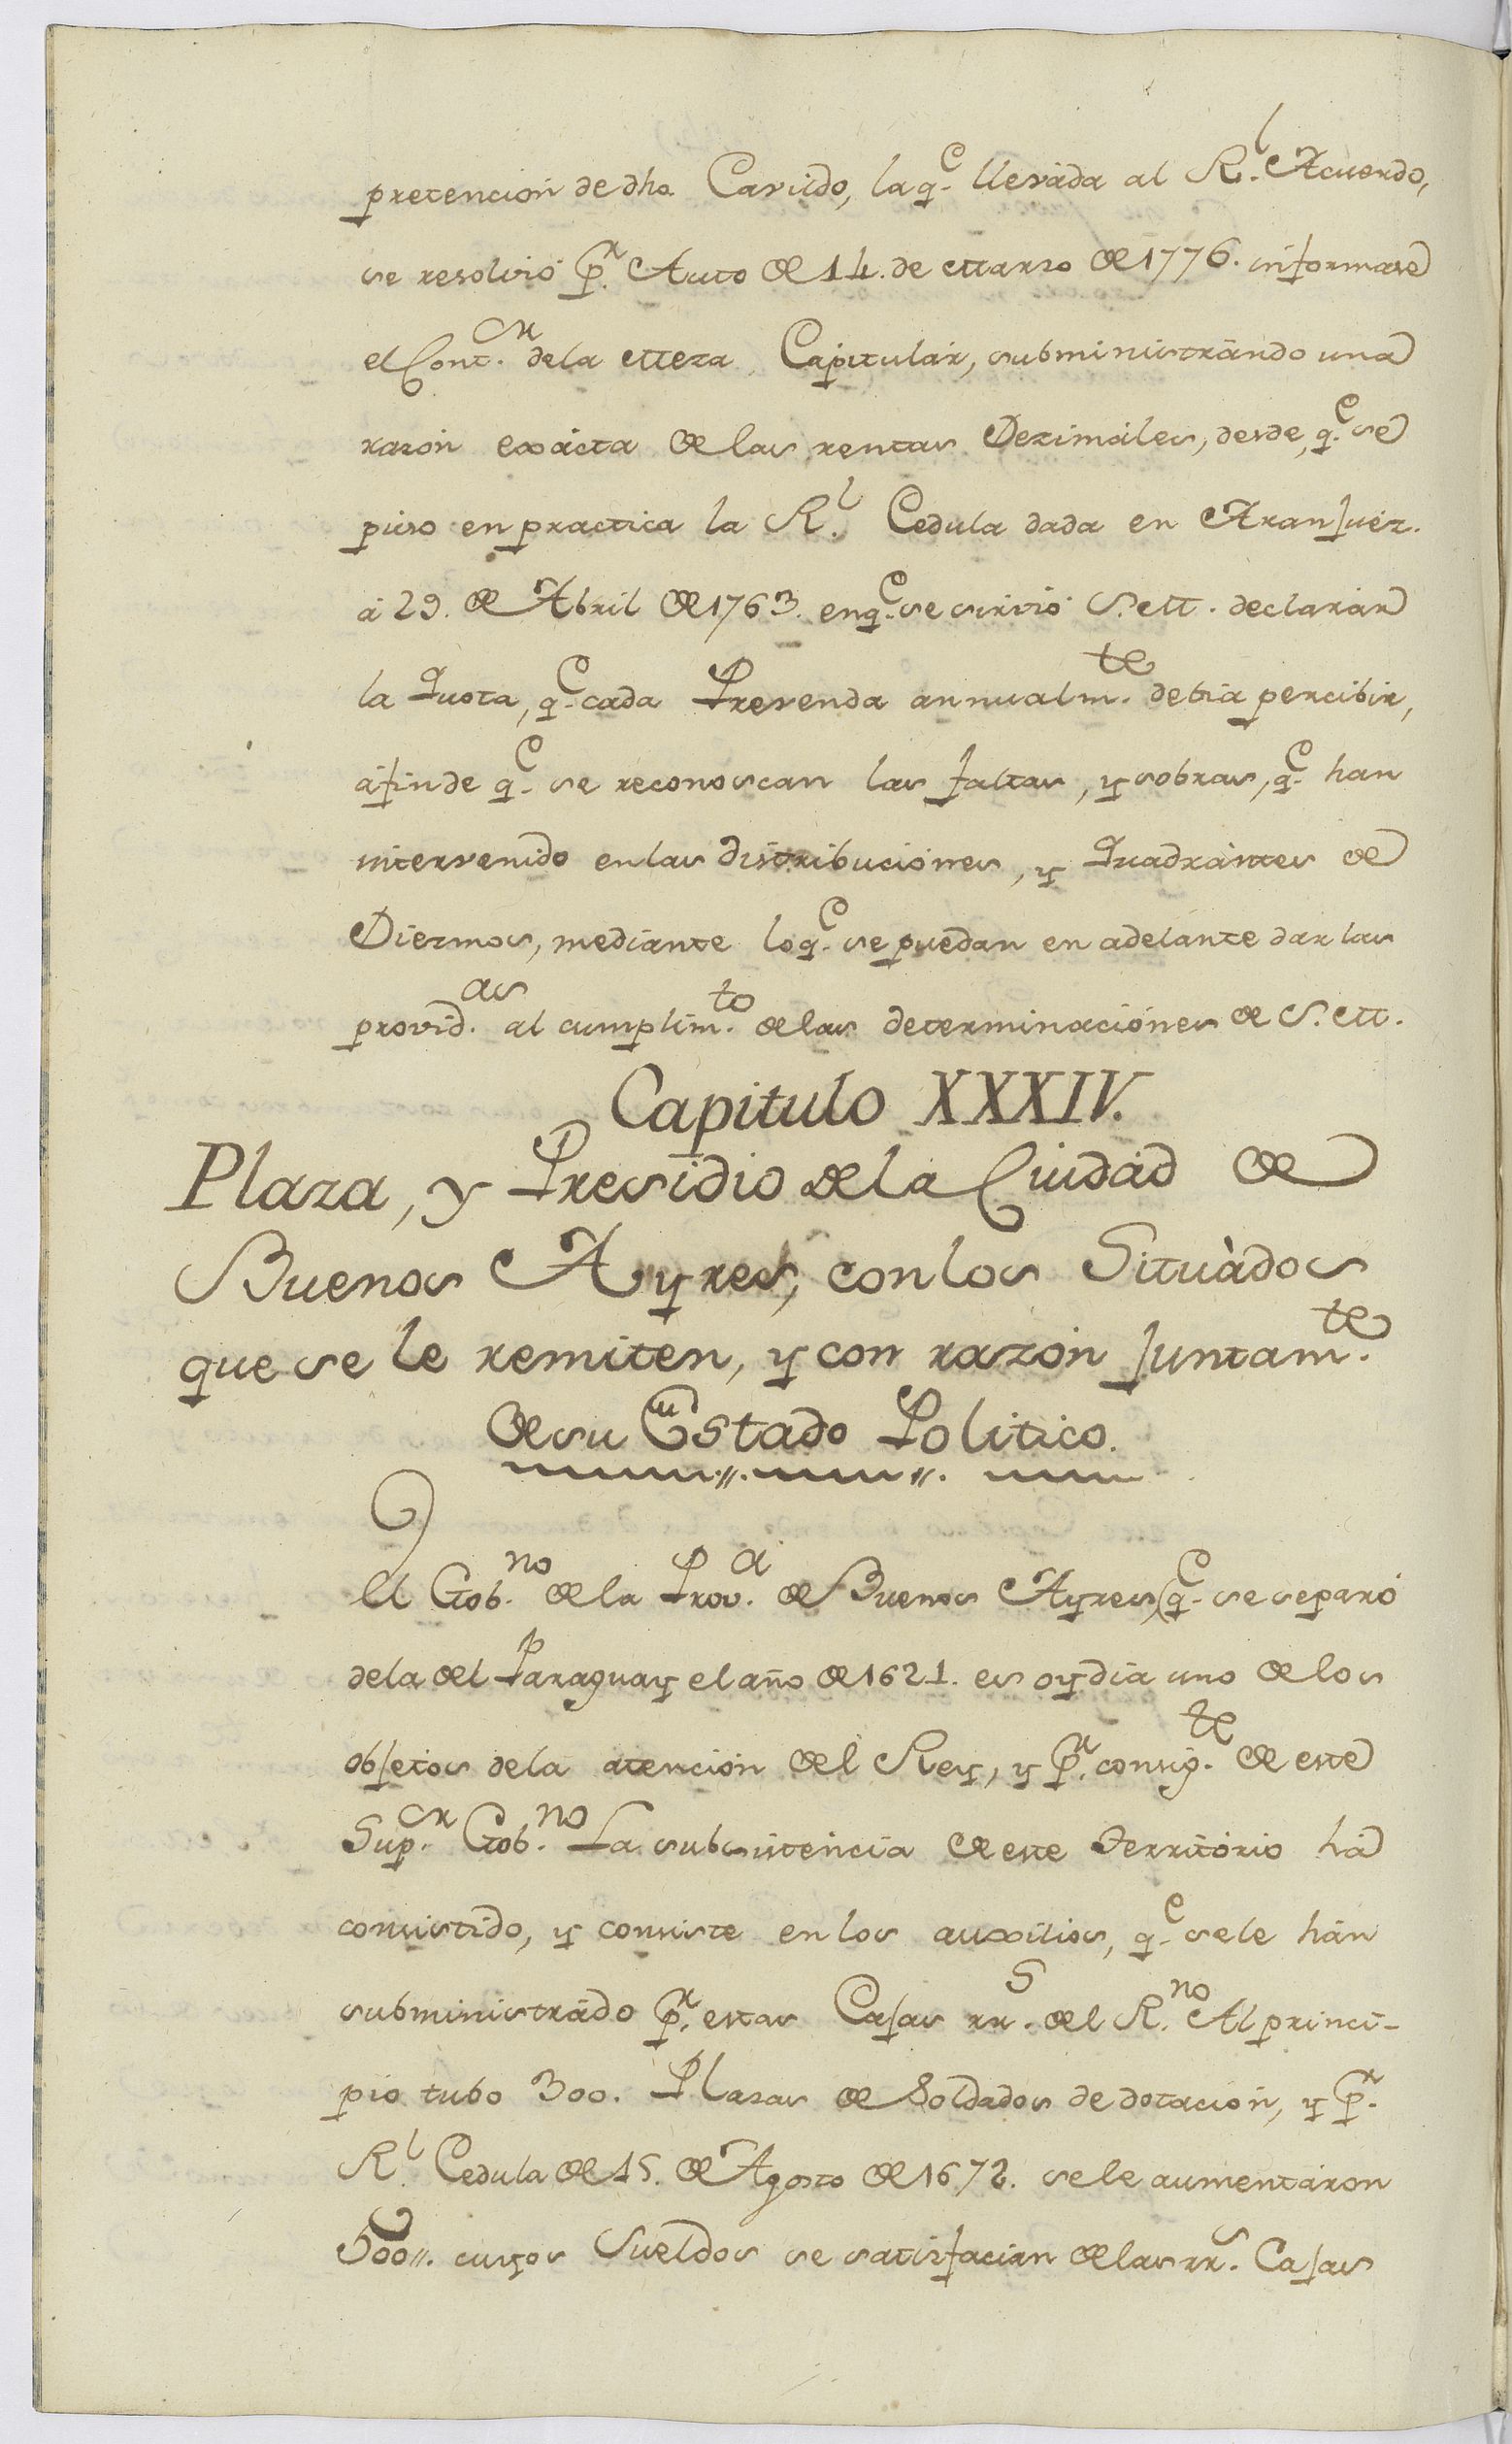 pretencion de dho. Cavildo, la q.e llevada al R.l Acuerdo,
se resolvió p.r Auto de 14. de Marzo de 1776. informase
el Cont.or de la Meza Capitular, subministrando una
razon exácta de las rentas Dezimales, desde, q.e se
puso en practica la R.l Cedula dada en Aranjuez.
á 29. de Abril de 1763. en q.e se sirvió S. M. declarar
la Quota, q.e cada Prevenda annualm.te debia percibir,
áfin de q.e se reconoscan las faltas, y sobras, q.e han
intervenido en las distribuciónes, y Quadrántes de
Diezmos, mediante lo q.e se puedan en adelante dar las
provid.as al cumplim.to de las determinaciónes de S. M.
Capitulo XXXIV.
Plaza, y Presidio de la Ciudád de
Buenos Ayres, con los Situàdos
que se le remiten, y con razón juntam.te
de su Estado Politico.
El Gob.no de la Prov.a de Buenos Ayres, q.e se separó
de la del Paraguay el año de 1621. es oy dia uno de los
objetos de la atencion del Rey, y p.r consig.te de este
Sup.or Gob.no La subsistencia de este Território há
consistido, y consiste en los auxilios, q.e se le hán
subministrádo p.r estas Cajas rr.s del R.no Al princi-
pio tubo 300. Plazas de Soldados de dotacion, y p.r
R.l Cedula de 15. de Agosto de 1672. se le aumentáron
500//. cuyos Sueldos se satisfacian de las rr.s Cajas